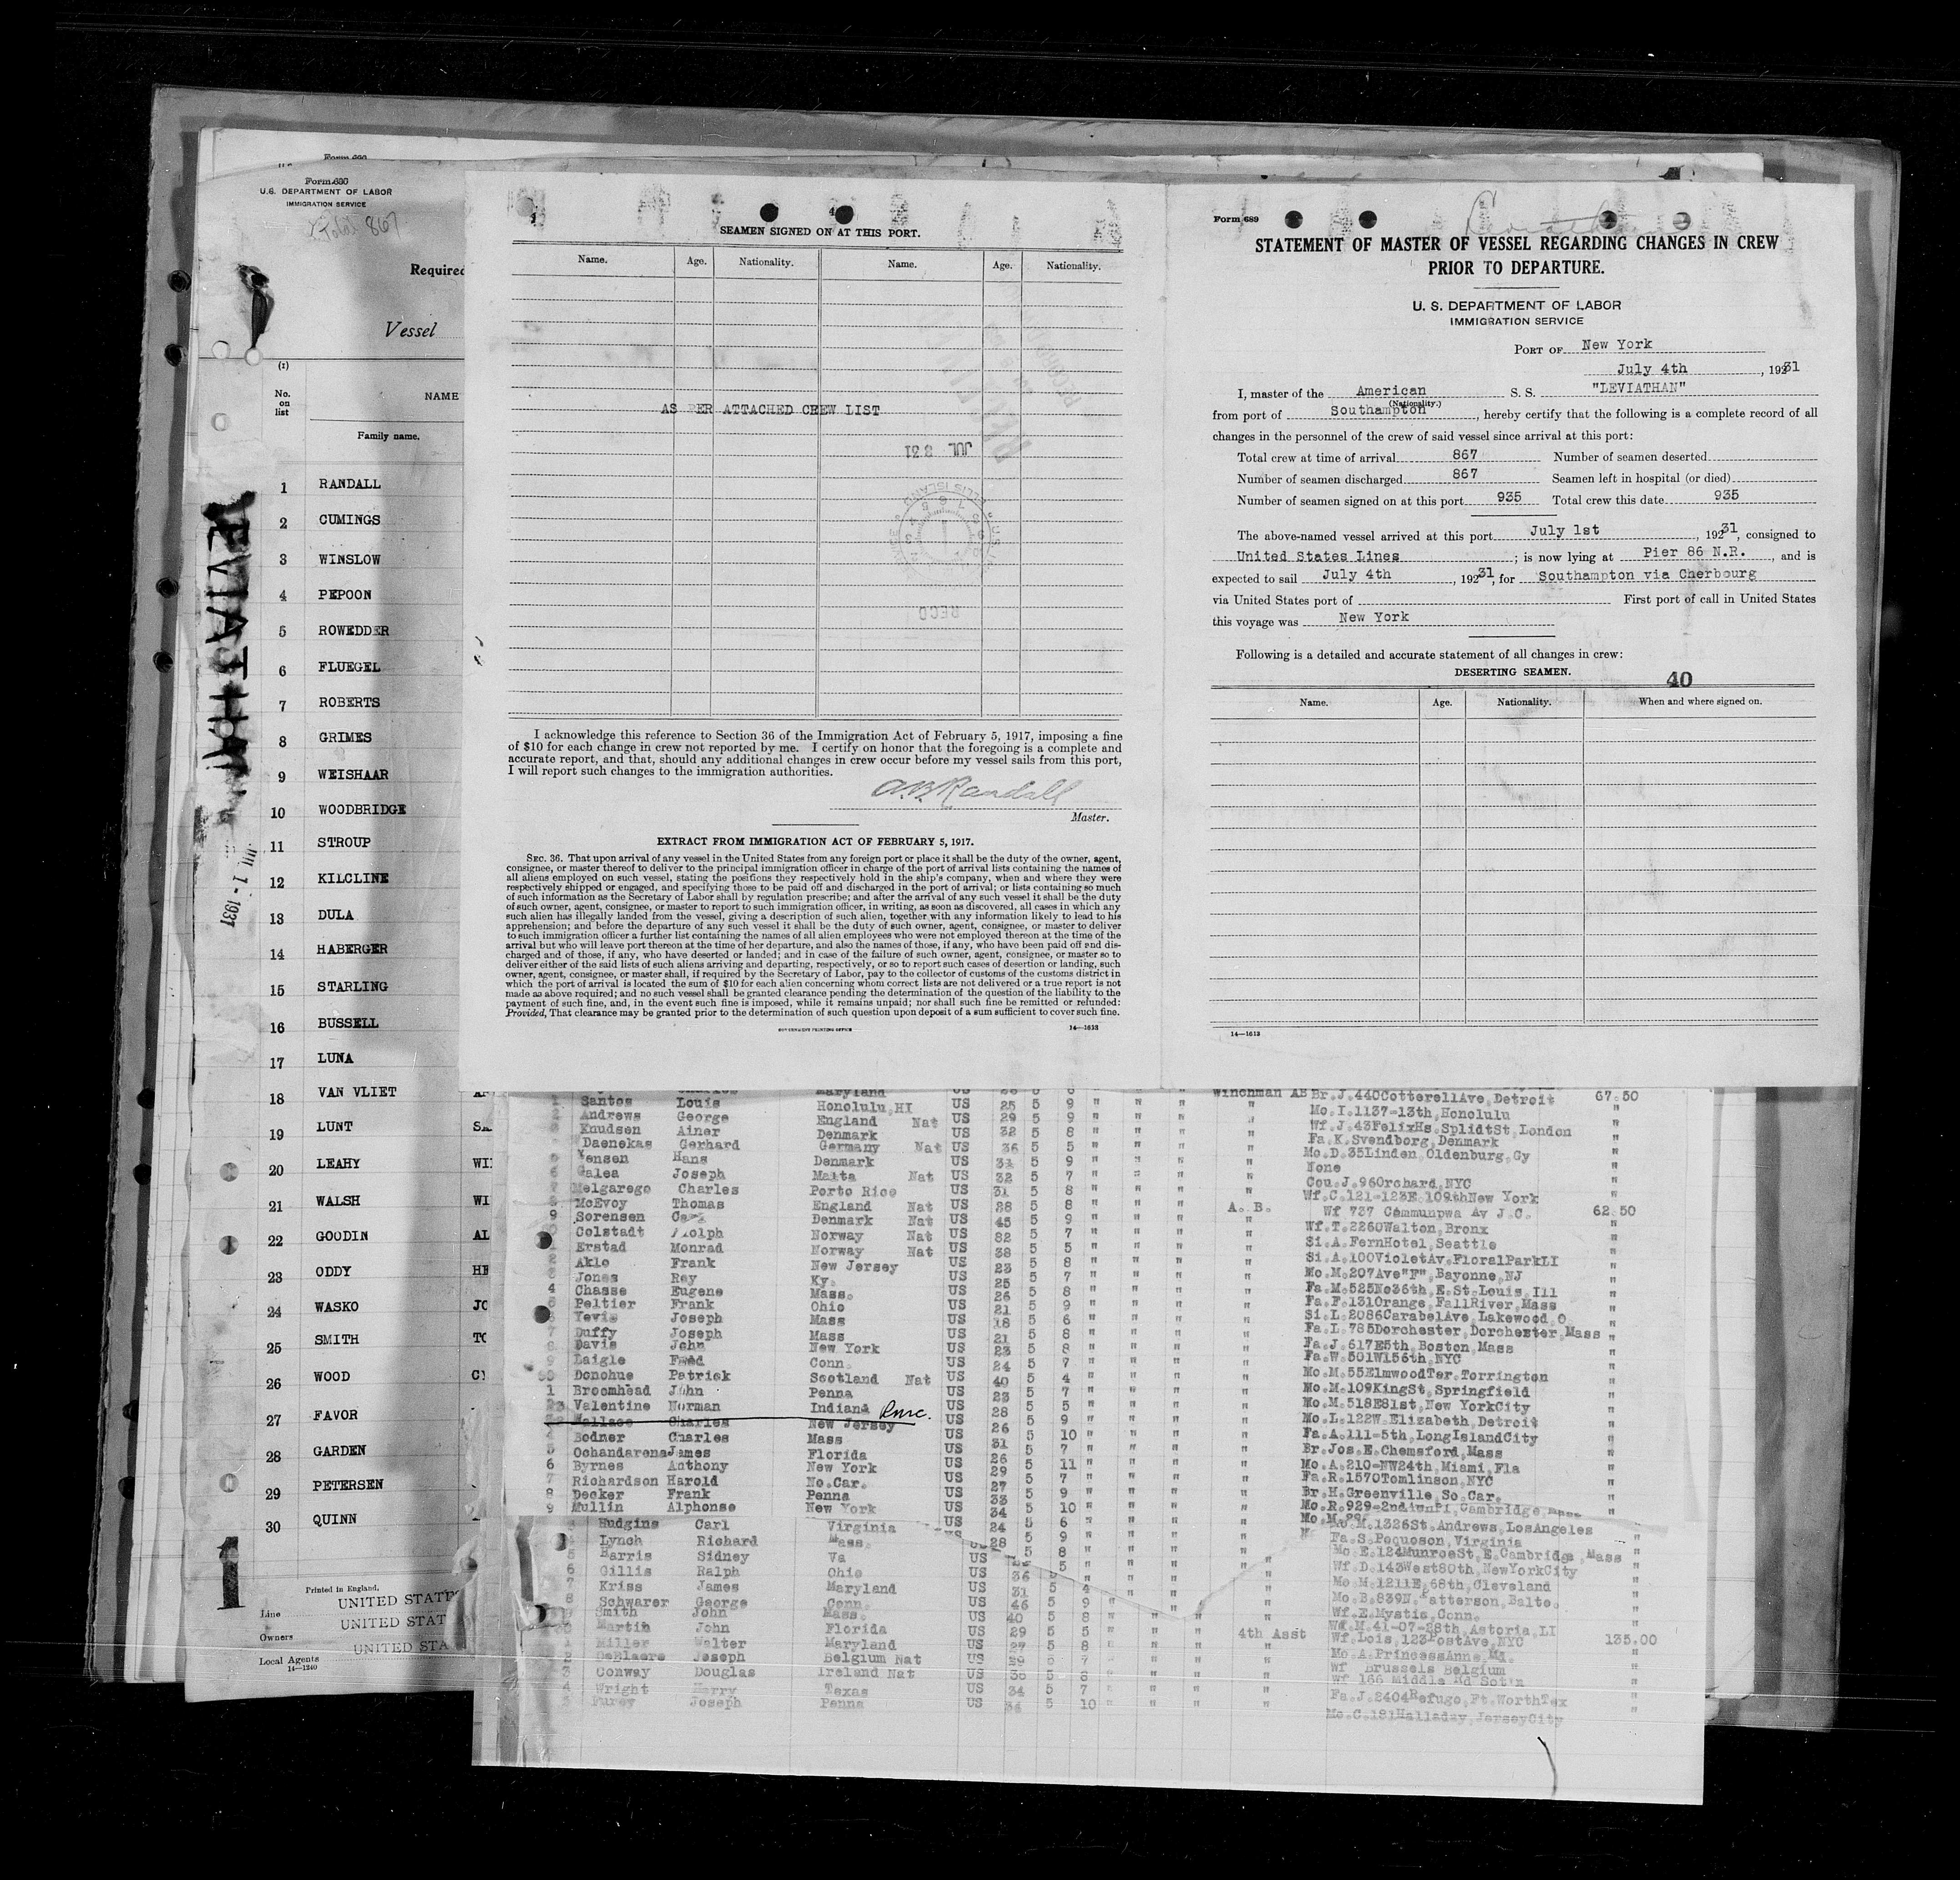 Form 680
U.S. DEPARTMENT OF LABOR
IMMIGRATION SERVICE
Total 867
Required
Vessel
(1)
No. on list
NAME
Family name.
1 RANDALL
2 CUMINGS
3 WINSLOW
4 PEPOON
5 ROWEDDER
6 FLUEGEL
7 ROBERTS
8 GRIMES
9 WEISHAAR
10 WOODBRIDGE
11 STROUP
12 KILCLINE
13 DULA
14 HABERGER
15 STARLING
16 BUSSELL
17 LUNA
18 VAN VLIET
19 LUNT
20 LEAHY WI
21 WALSH WI
22 GOODIN AL
23 ODDY HE
24 WASKO JO
25 SMITH TO
26 WOOD
27 FAVOR
28 GARDEN
29 PETERSEN
30 QUINN
LEVIATHAN
JUL 1 - 1931
1
Printed in England.
Line UNITED STATE
Owners UNITED STAT
Local Agents UNITED STA
14—1240
SEAMEN SIGNED ON AT THIS PORT.
Name. Age. Nationality. Name. Age. Nationality.
AS PER ATTACHED CREW LIST
I acknowledge this reference to Section 36 of the Immigration Act of February 5, 1917, imposing a fine
of $10 for each change in crew not reported by me. I certify on honor that the foregoing is a complete and
accurate report, and that, should any additional changes in crew occur before my vessel sails from this port,
I will report such changes to the immigration authorities.
A.B. Randall
Master.
EXTRACT FROM IMMIGRATION ACT OF FEBRUARY 5, 1917.
SEC. 36. That upon arrival of any vessel in the United States from any foreign port or place it shall be the duty of the owner, agent,
consignee, or master thereof to deliver to the principal immigration officer in charge of the port of arrival lists containing the names of
all aliens employed on such vessel, stating the positions they respectively hold in the ship's company, when and where they were
respectively shipped or engaged, and specifying those to be paid off and discharged in the port of arrival; or lists containing so much
of such information as the Secretary of Labor shall by regulation prescribe; and after the arrival of any such vessel it shall be the duty
of such owner, agent, consignee, or master to report to such immigration officer, in writing, as soon as discovered, all cases in which any
such alien has illegally landed from the vessel, giving a description of such alien, together with any information likely to lead to his
apprehension; and before the departure of any such vessel it shall be the duty of such owner, agent, consignee, or master to deliver
to such immigration officer a further list containing the names of all alien employees who were not employed thereon at the time of the
arrival but who will leave port thereon at the time of her departure, and also the names of those, if any, who have been paid off and dis-
charged and of those, if any, who have deserted or landed; and in case of the failure of such owner, agent, consignee, or master so to
deliver either of the said lists of such aliens arriving and departing, respectively, or so to report such cases of desertion or landing, such
owner, agent, consignee, or master shall, if required by the Secretary of Labor, pay to the collector of customs of the customs district in
which the port of arrival is located the sum of $10 for each alien concerning whom correct lists are not delivered or a true report is not
made as above required; and no such vessel shall be granted clearance pending the determination of the question of the liability to the
payment of such fine, and, in the event such fine is imposed, while it remains unpaid; nor shall such fine be remitted or refunded:
Provided, That clearance may be granted prior to the determination of such question upon deposit of a sum sufficient to cover such fine.
GOVERNMENT PRINTING OFFICE 14—1613
Form 689
Leviathan
STATEMENT OF MASTER OF VESSEL REGARDING CHANGES IN CREW
PRIOR TO DEPARTURE.
U. S. DEPARTMENT OF LABOR
IMMIGRATION SERVICE
PORT OF New York
July 4th, 19231
I, master of the American S. S. "LEVIATHAN"
(Nationality.)
from port of Southampton, hereby certify that the following is a complete record of all
changes in the personnel of the crew of said vessel since arrival at this port:
Total crew at time of arrival 867 Number of seamen deserted
Number of seamen discharged 867 Seamen left in hospital (or died)
Number of seamen signed on at this port 935 Total crew this date 935
The above-named vessel arrived at this port July 1st, 19231, consigned to
United States Lines; is now lying at Pier 86 N.R., and is
expected to sail July 4th, 19231, for Southampton via Cherbourg
via United States port of First port of call in United States
this voyage was New York
Following is a detailed and accurate statement of all changes in crew:
DESERTING SEAMEN. 40
Name. Age. Nationality. When and where signed on.
14—1613
Santos Louis Honolulu,HI US 25 5 9 " " "
Andrews George England Nat US 29 5 9 " " "
Knudsen Ainer Denmark US 32 5 8 " " "
Daenekas Gerhard Germany Nat US 36 5 5 " " "
Jensen Hans Denmark US 31 5 9 " " "
Galea Joseph Malta Nat US 32 5 7 " " "
Melgarego Charles Porto Rico US 31 5 8 " " "
McEvoy Thomas England Nat US 28 5 8 " " A. B.
Sorensen Denmark Nat US 45 5 9
Colstadt Norway Nat US 5 7
Erstad Monrad Norway Nat US 38 5 5
Aklo Frank New Jersey US 23 5 8
Jones Roy Ky. US 25 5 7
4 Chasse Eugene Mass. US 26 5 8
Peltier Frank Ohio US 21 5 9
Yevis Joseph Mass US 18 5 6
7 Duffy Joseph Mass US 21 5 8
Davis John New York US 23 5 8
9 Laigle Conn. US 24 5 7
Donohue Patrick Scotland Nat US 40 5 4
1 Broomhead John Penna US 23 5 7
Valentine Norman Indiana US 28 5 5
Rmc.
Wallace Charles New Jersey US 26 5 9
Bodner Charles Mass US 31 5 10
Ochandarena James Florida US 26 5 7
6 Byrnes Anthony New York US 29 5 11
7 Richardson Harold No.Car. US 27 5 7
8 Decker Frank Penna US 33 5 9
9 Mullin Alphonse New York US 34 5 10
Hudgins Carl Virginia 24 5 6
Lynch Richard Mass. 28 5 9
5 Harris Sidney Va US 5 8
6 Gillis Ralph Ohio US 36 5
7 Kriss James Maryland US 31 5 4
8 Schwarer George Conn. US 46 5 9
Smith John Mass. US 40 5 8
Martin John Florida US 29 5 5 " " " 4th Asst
Miller Walter Maryland US 27 5 8
DeBlaere Joseph Belgium Nat US 29
3 Conway Douglas Ireland Nat US 5
4 Wright Harry Texas US 34 5 7
Furey Joseph Penna US 5 10
Winchman AB Br.J.440CotterellAve,Detroit 67.50
Mo.I.1137-13th,Honolulu
Wf.J.43FelixHs.SplidtSt,London
Fa.K.Svendborg,Denmark
Mo.D.35Linden,Oldenburg,Gy
None
Cou.J.96Orchard,NYC
Wf.C.121-123E.109thNew York
Wf 737 Communpwa Av J.C. 62.50
Wf.T.2260Walton,Bronx
Si.A.FernHotel,Seattle
Si.A.100VioletAv.FloralParkLI
Mo.M.207Ave"F",Bayonne,NJ
Fa.M.525No36th,E.St.Louis,Ill
Fa.F.131Orange,FallRiver,Mass
Si.L.2086CarabelAve,Lakewood,O.
Fa.L.785Dorchester,Dorchester,Mass
Fa.J.617E5th,Boston,Mass
Fa.W.501W156th,NYC
Mo.M.55ElmwoodTer.Torrington
Mo.M.109KingSt,Springfield
Mo.M.518E81st,New YorkCity
Mo.L.122W.Elizabeth,Detroit
Fa.A.111-5th,LongIslandCity
Br.Jos.E.Chemsford,Mass
Mo.A.210-NW24th,Miami,Fla
Fa.R.1570Tomlinson,NYC
Br.H.Greenville,So.Car.
Mo.M.1326St.Andrews,LosAngeles
Fa.S.Poquoson,Virginia
Mo.E.124MunroeSt,E.Cambridge,Mass
Wf.D.143West80th,NewYorkCity
Mo.M.1211E.68th,Cleveland
Mo.B.839N.Patterson,Balto.
Wf.E.Mystic,Conn.
Wf.M.41-07-28th,Astoria,LI
Wf.Lois,123PostAve,NYC 135.00
Mo.A.PrincessAnne,Md.
Wf Brussels Belgium
Wf 166 Middle Rd Sot'n
Fa.J.2404Refugo,Ft.WorthTex
Mo.C.181Halladay,JerseyCity